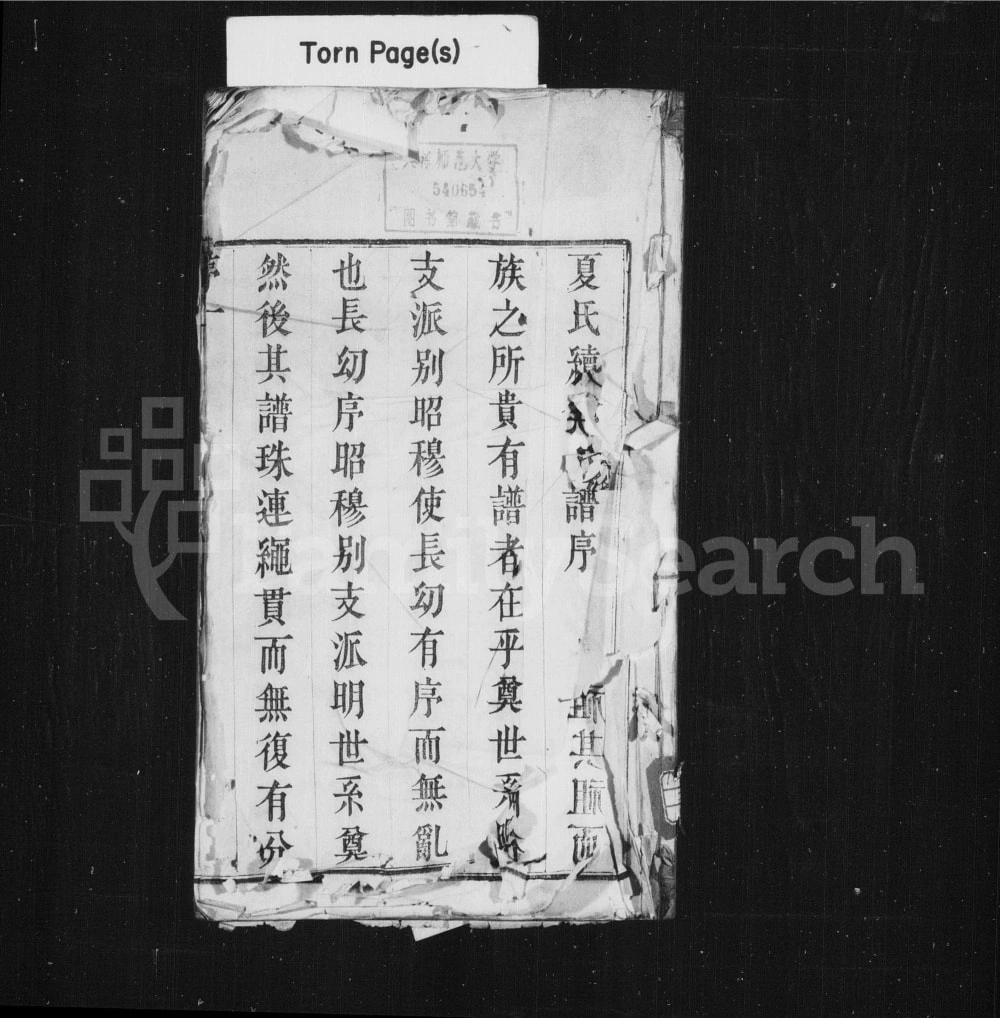 Torn Page(s)
师范大学
540654
图书馆藏书
夏氏續 譜序
族之所貴有譜者在乎奠世系
支派別昭穆使長幼有序而無亂
也長幼序昭穆別支派明世系奠
然後其譜珠連繩貫而無復有分
FamilySearch